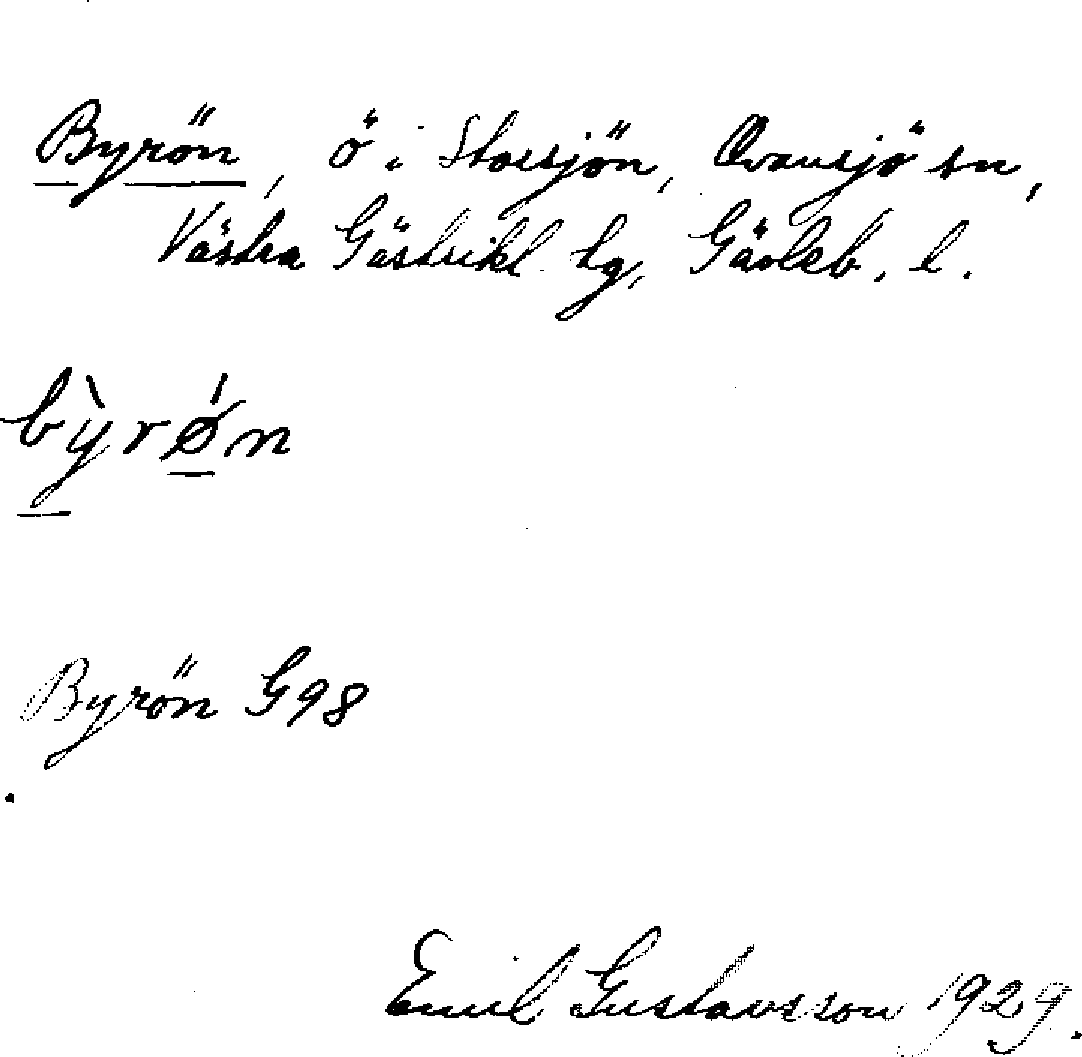 Byrön, ö i Storsjön, Ovansjö sn,
Västra Gästrikl. tg, Gävleb. l.
bỳrǿn
Byrön G98
Emil Gustavsson 1929.